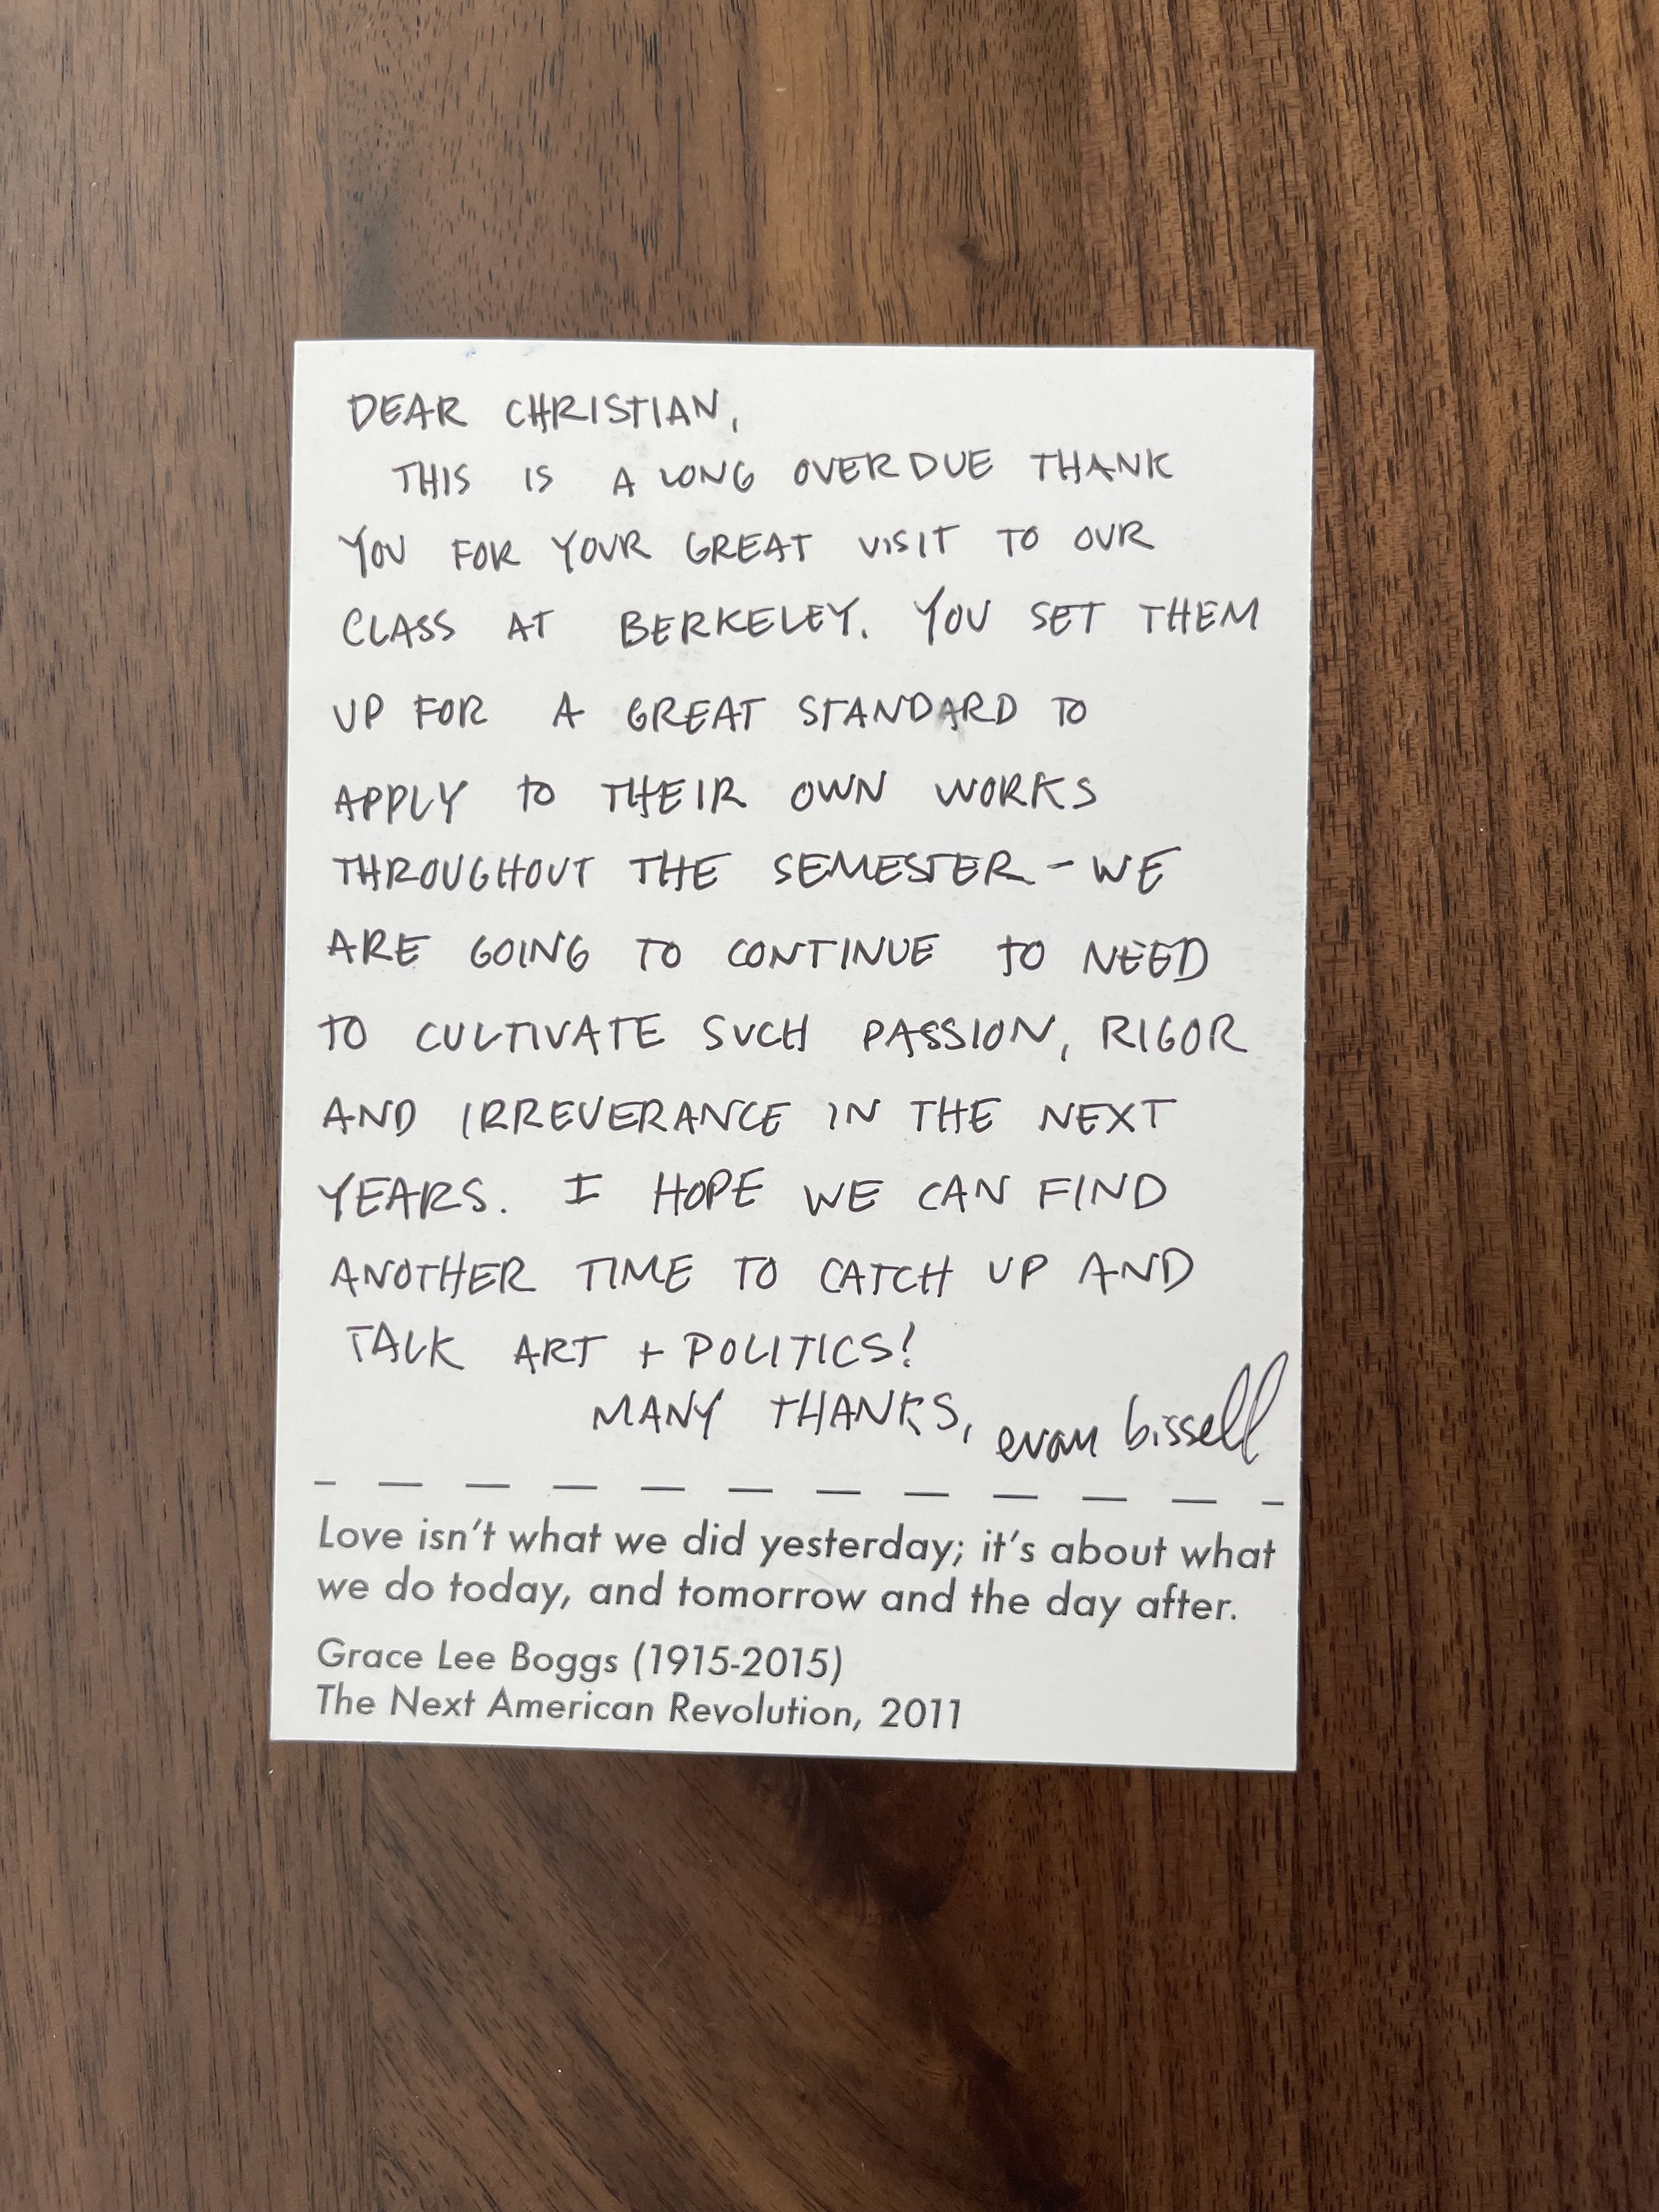 DEAR CHRISTIAN,
THIS IS A LONG OVERDUE THANK
YOU FOR YOUR GREAT VISIT TO OUR
CLASS AT BERKELEY. YOU SET THEM
UP FOR A GREAT STANDARD TO
APPLY TO THEIR OWN WORKS
THROUGHOUT THE SEMESTER - WE
ARE GOING TO CONTINUE TO NEED
TO CULTIVATE SUCH PASSION, RIGOR
AND IRREVERANCE IN THE NEXT
YEARS. I HOPE WE CAN FIND
ANOTHER TIME TO CATCH UP AND
TALK ART + POLITICS!
MANY THANKS, evan bissell
Love isn't what we did yesterday; it's about what
we do today, and tomorrow and the day after.
Grace Lee Boggs (1915-2015)
The Next American Revolution, 2011